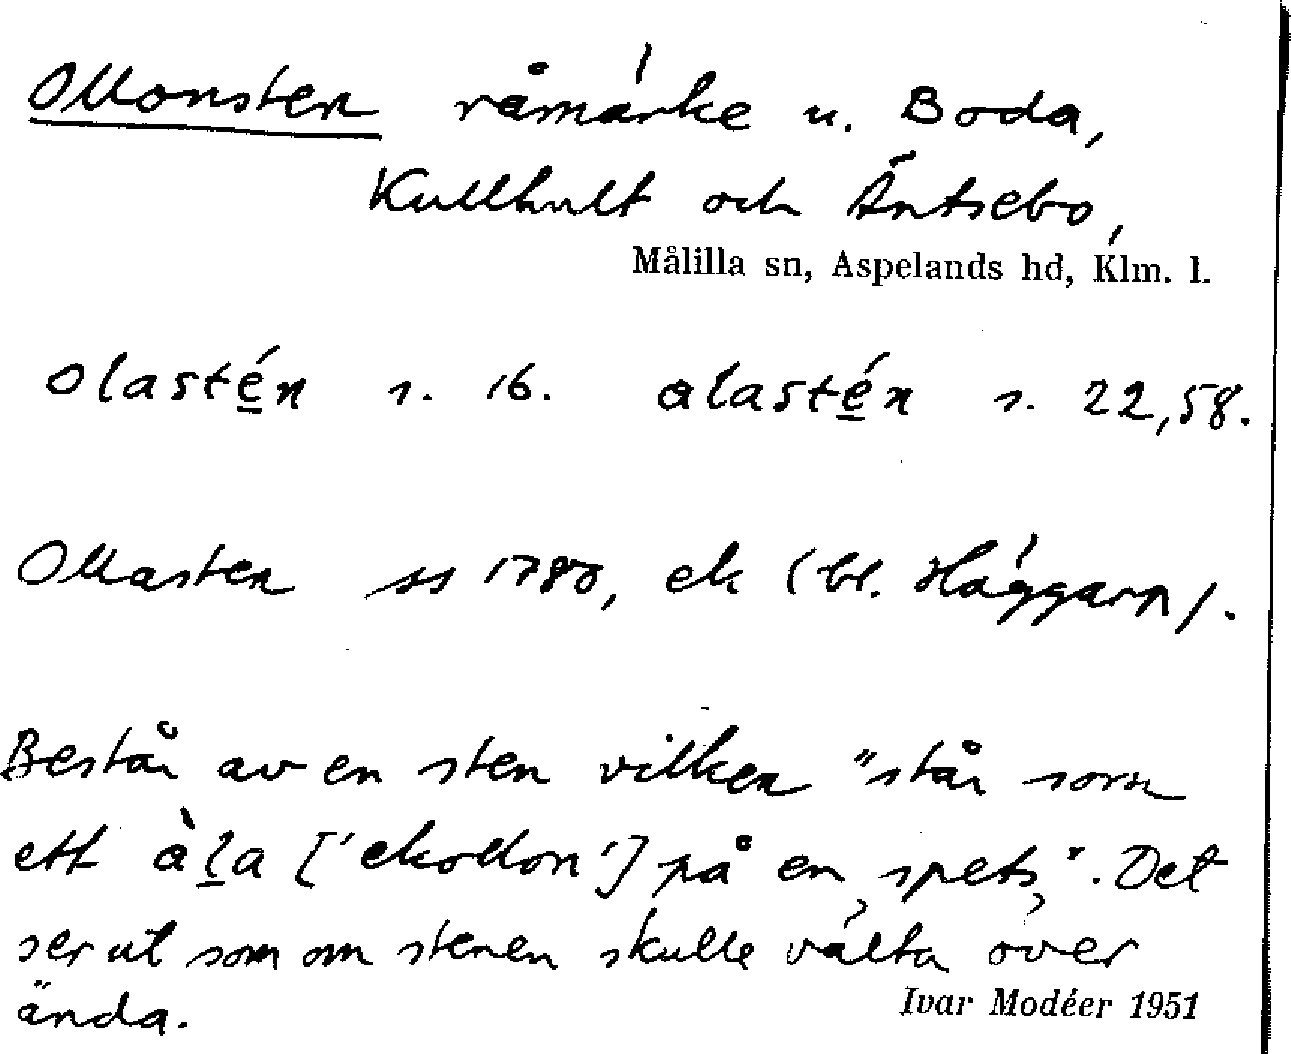 Ollonsten råmärke u. Boda,
Kullhult och Äntsebo,
Målilla sn, Aspelands hd, Klm. l.
olastén s. 16. alastén s. 22,58.
Ollasten ss 1780, ek (bl. Häggarp).
Består av en sten vilken "står som
ett àla ['ekollon'] på en spets". Det
ser ut som om stenen skulle välta över
ända.
Ivar Modéer 1951